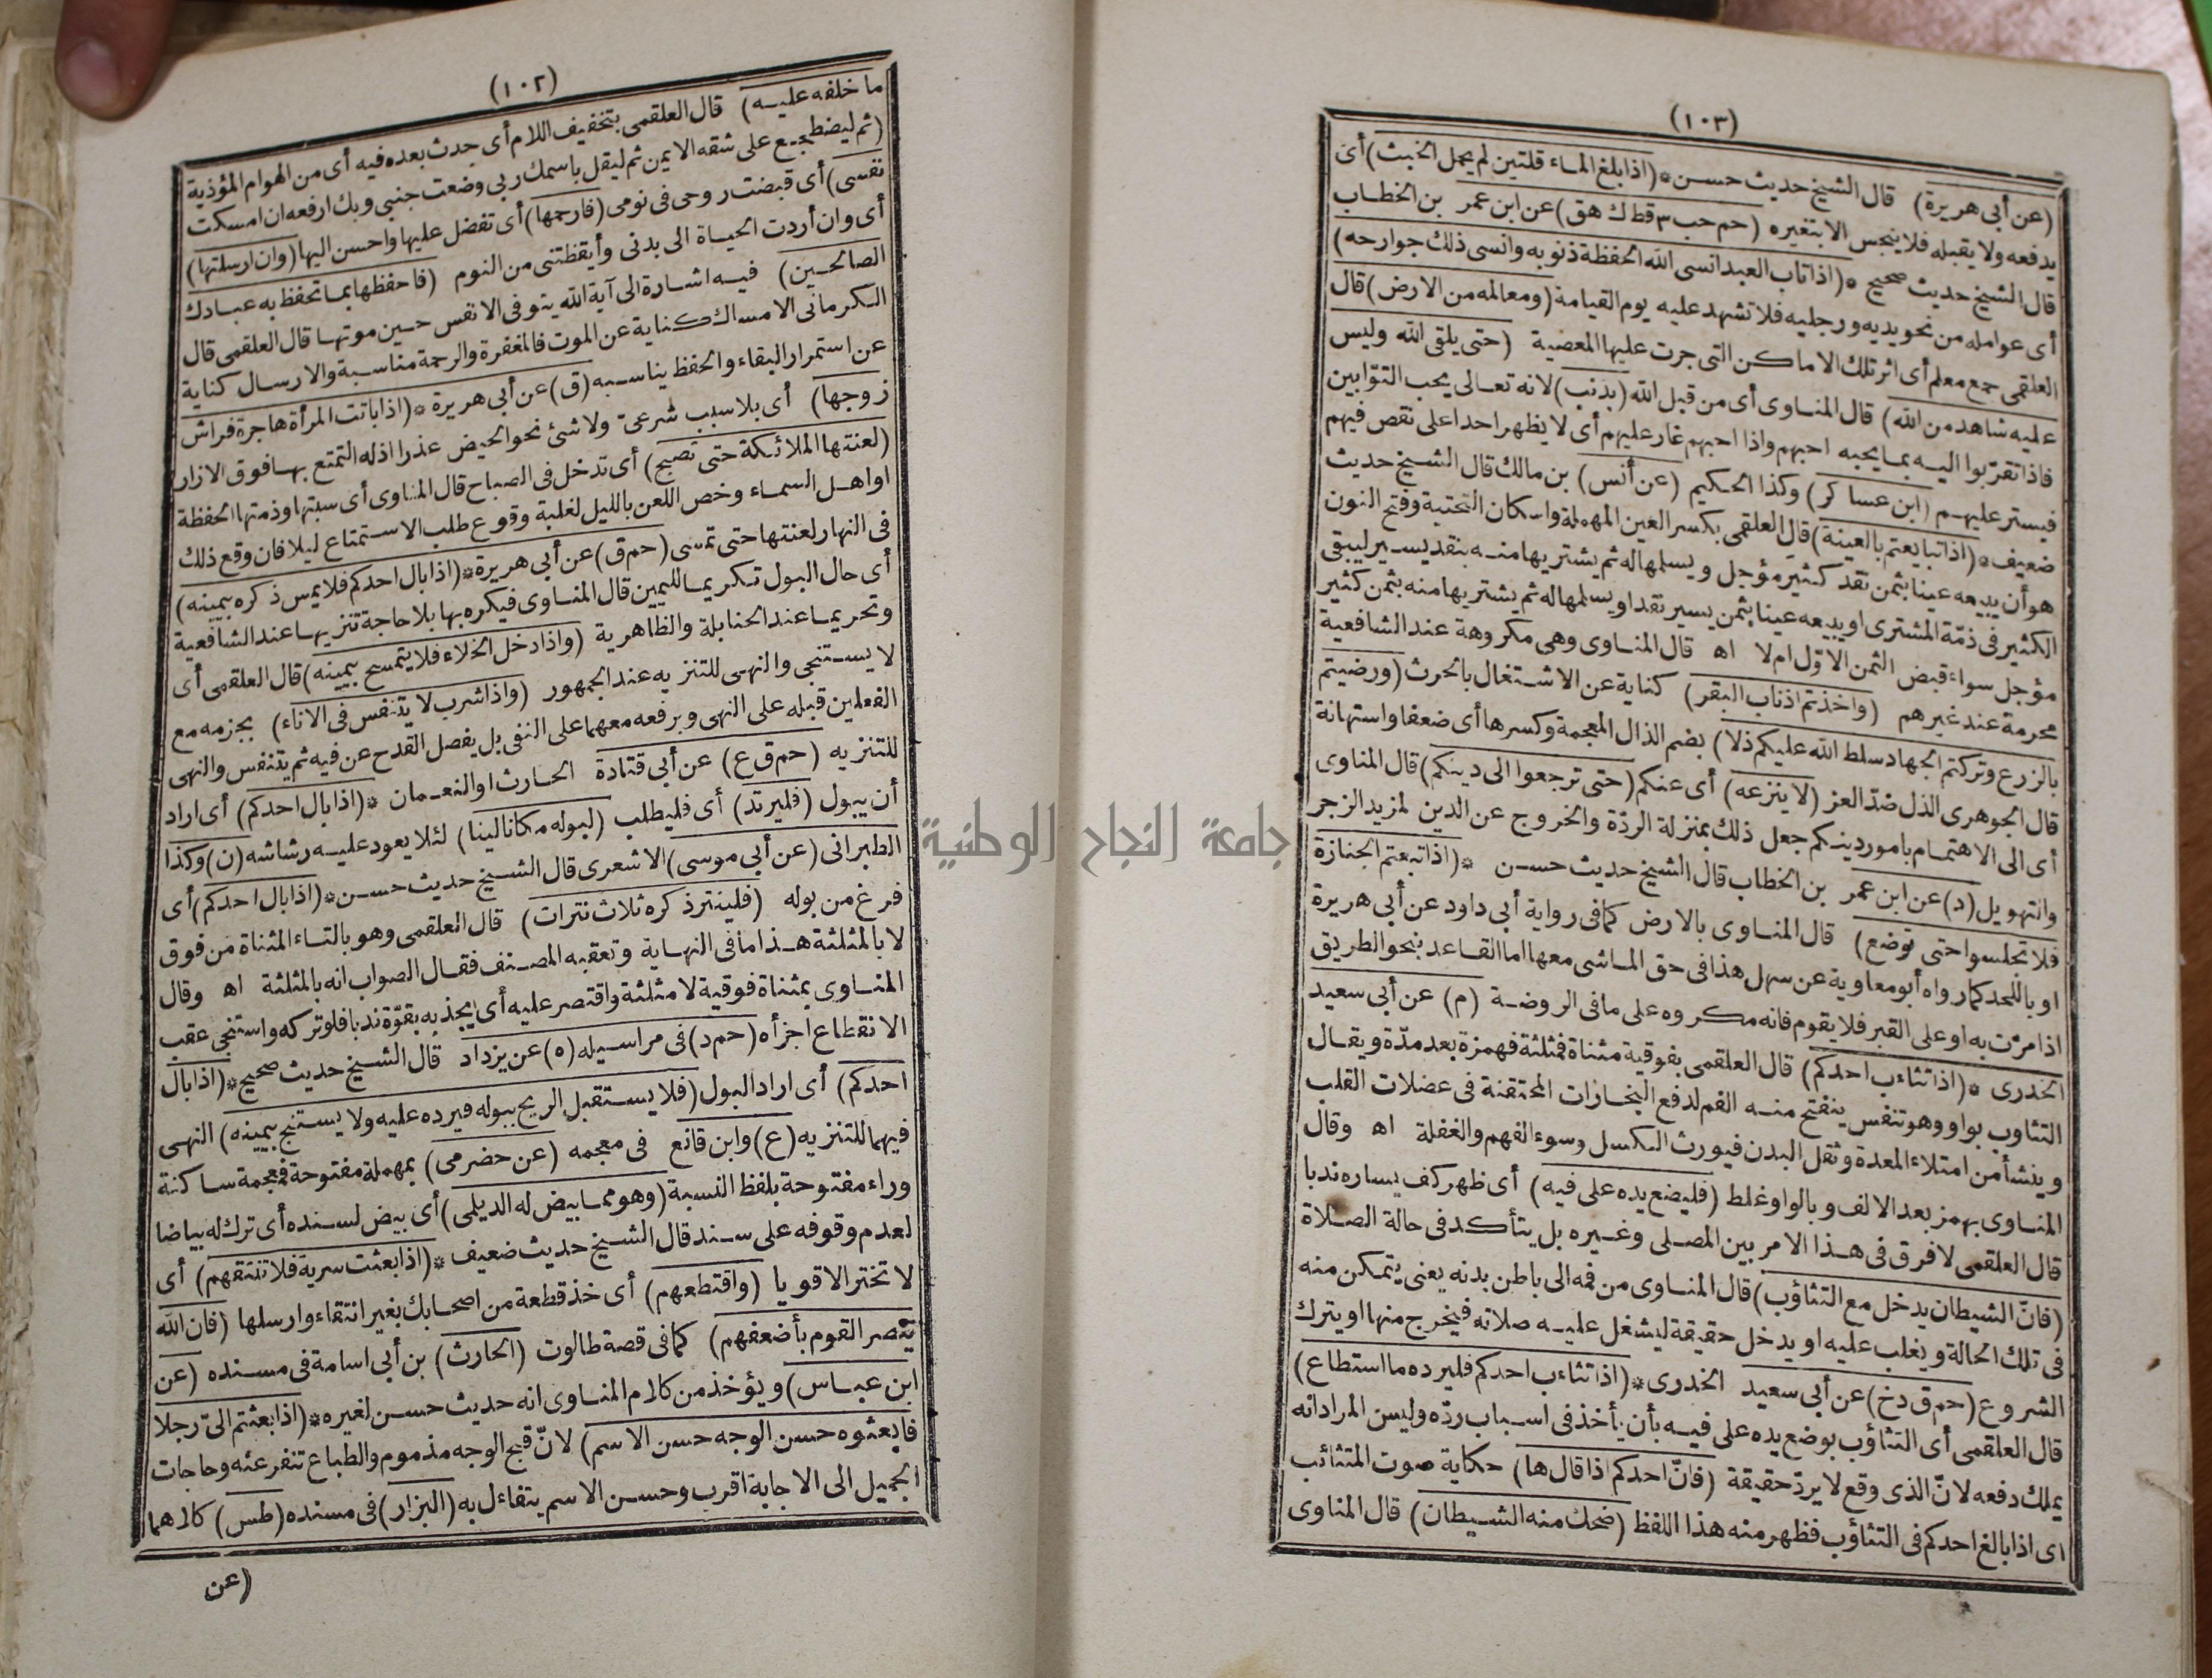 (١٠٢)
ما خلفه عليه) قال العلقمى بتخفيف اللام أى حدث بعده فيه أى من الهوام المؤذية
(ثم ليضطجع على شقه الايمن ثم ليقل باسمك ربى وضعت جنبى وبك ارفعه ان امسكت
نفسى) أى قبضت روحى فى نومى (فارحمها) أى تفضل عليها واحسن اليها (وان ارسلتها)
أى وان أردت الحياة الى بدنى وأيقظتنى من النوم (فاحفظها بما تحفظ به عبادك
الصالحين) فيه اشارة الى آية الله يتوفى الانفس حين موتها قال العلقمى قال
الكرمانى الامساك كناية عن الموت فالمغفرة والرحمة مناسبة والارسال كناية
عن استمرار البقاء والحفظ يناسبه (ق) عن أبى هريرة * (اذا باتت المرأة هاجرة فراش
زوجها) أى بلا سبب شرعىّ ولا شئ نحو الحيض عذرا اذ له التمتع بها فوق الازار
(لعنتها الملائكة حتى تصبح) أى تدخل فى الصباح قال المناوى أى سبتها وذمتها الحفظة
او اهل السماء وخص اللعن بالليل لغلبة وقوع طلب الاستمتاع ليلا فان وقع ذلك
فى النهار لعنتها حتى تمسى (حم ق) عن أبى هريرة * (اذا بال احدكم فلا يمس ذكره بيمينه)
أى حال البول تكريما لليمين قال المناوى فيكره بها بلا حاجة تنزيها عند الشافعية
وتحريما عند الحنابلة والظاهرية (واذا دخل الخلاء فلا يتمسح بيمينه) قال العلقمى أى
لا يستنجى والنهى للتنزيه عند الجمهور (واذا شرب لا يتنفس فى الاناء) بجزمه مع
الفعلين قبله على النهى وبرفعه معهما على النفى بل يفصل القدح عن فيه ثم يتنفس والنهى
للتنزيه (حم ق ع) عن أبى قتادة الحارث او النعمان * (اذا بال احدكم) أى اراد
أن يبول (فليرتد) أى فليطلب (لبوله مكانا لينا) لئلا يعود عليه رشاشه (ن) وكذا
الطبرانى (عن أبى موسى) الاشعرى قال الشيخ حديث حسن * (اذا بال احدكم) أى
فرغ من بوله (فلينتر ذكره ثلاث نترات) قال العلقمى وهو بالتاء المثناة من فوق
لا بالمثلثة هذا ما فى النهاية وتعقبه المصنف فقال الصواب انه بالمثلثة اه وقال
المناوى بمثناة فوقية لا مثلثة واقتصر عليه أى يجذبه بقوّة ندبا فلو تركه واستنجى عقب
الانقطاع اجزأه (حم د) فى مراسيله (ه) عن يزداد قال الشيخ حديث صحيح * (اذا بال
احدكم) أى اراد البول (فلا يستقبل الريح ببوله فيرده عليه ولا يستنج بيمينه) النهى
فيهما للتنزيه (ع) وابن قانع فى معجمه (عن حضرمى) بمهملة مفتوحة فمعجمة ساكنة
وراء مفتوحة بلفظ النسبة (وهو مما بيض له الديلمى) أى بيض لسنده أى ترك له بياضا
لعدم وقوفه على سند قال الشيخ حديث ضعيف * (اذا بعثت سرية فلا تنتقهم) أى
لا تختر الاقويا (واقتطعهم) أى خذ قطعة من اصحابك بغير انتقاء وارسلها (فان الله
ينصر القوم بأضعفهم) كما فى قصة طالوت (الحارث) بن أبى اسامة فى مسنده (عن
ابن عباس) ويؤخذ من كلام المناوى انه حديث حسن لغيره * (اذا بعثتم الىّ رجلا
فابعثوه حسن الوجه حسن الاسم) لانّ قبح الوجه مذموم والطباع تنفر عنه وحاجات
الجميل الى الاجابة اقرب وحسن الاسم يتفاءل به (البزار) فى مسنده (طس) كلاهما
(عن
(١٠٣)
(عن أبى هريرة) قال الشيخ حديث حسن * (اذا بلغ الماء قلتين لم يحمل الخبث) أى
يدفعه ولا يقبله فلا ينجس الا بتغيره (حم حب ٣ قط ك هق) عن ابن عمر بن الخطاب
قال الشيخ حديث صحيح * (اذا تاب العبد انسى الله الحفظة ذنوبه وانسى ذلك جوارحه)
أى عوامله من نحو يديه ورجليه فلا تشهد عليه يوم القيامة (ومعالمه من الارض) قال
العلقمى جمع معلم أى اثر تلك الاماكن التى جرت عليها المعصية (حتى يلقى الله وليس
عليه شاهد من الله) قال المناوى أى من قبل الله (بذنب) لانه تعالى يحب التوّابين
فاذا تقرّبوا اليه بما يحبه احبهم واذا احبهم غار عليهم أى لا يظهر احدا على نقص فيهم
فيستر عليهم (ابن عساكر) وكذا الحكيم (عن أنس) بن مالك قال الشيخ حديث
ضعيف * (اذا تبايعتم بالعينة) قال العلقمى بكسر العين المهملة واسكان التحتية وفتح النون
هو أن يبيعه عينا بثمن نقد كثير مؤجل ويسلمها له ثم يشتريها منه بنقد يسير ليبقى
الكثير فى ذمّة المشترى او يبيعه عينا بثمن يسير نقدا ويسلمها له ثم يشتريها منه بثمن كثير
مؤجل سواء قبض الثمن الاوّل ام لا اه قال المناوى وهى مكروهة عند الشافعية
محرمة عند غيرهم (واخذتم اذناب البقر) كناية عن الاشتغال بالحرث (ورضيتم
بالزرع وتركتم الجهاد سلط الله عليكم ذلا) بضم الذال المعجمة وكسرها أى ضعفا واستهانة
قال الجوهرى الذل ضدّ العز (لا ينزعه) أى عنكم (حتى ترجعوا الى دينكم) قال المناوى
أى الى الاهتمام بامور دينكم جعل ذلك بمنزلة الردّة والخروج عن الدين لمزيد الزجر
والتهويل (د) عن ابن عمر بن الخطاب قال الشيخ حديث حسن * (اذا تبعتم الجنازة
فلا تجلسوا حتى توضع) قال المناوى بالارض كما فى رواية أبى داود عن أبى هريرة
او باللحد كما رواه أبو معاوية عن سهل هذا فى حق الماشى معها اما القاعد بنحو الطريق
اذا مرّت به او على القبر فلا يقوم فانه مكروه على ما فى الروضة (م) عن أبى سعيد
الخدرى * (اذا تثاءب احدكم) قال العلقمى بفوقية مثناة فمثلثة فهمزة بعد مدّة ويقال
التثاوب بواو وهو تنفس ينفتح منه الفم لدفع البخارات المحتقنة فى عضلات القلب
وينشأ من امتلاء المعدة وثقل البدن فيورث الكسل وسوء الفهم والغفلة اه وقال
المناوى بهمز بعد الالف وبالواو غلط (فليضع يده على فيه) أى ظهر كف يساره ندبا
قال العلقمى لا فرق فى هذا الامر بين المصلى وغيره بل يتأكد فى حالة الصلاة
(فانّ الشيطان يدخل مع التثاؤب) قال المناوى من فمه الى باطن بدنه يعنى يتمكن منه
فى تلك الحالة ويغلب عليه او يدخل حقيقة ليشغل عليه صلاته فيخرج منها او يترك
الشروع (حم ق دخ) عن أبى سعيد الخدرى * (اذا تثاءب احدكم فليرده ما استطاع)
قال العلقمى أى التثاؤب بوضع يده على فيه بأن يأخذ فى اسباب ردّه وليس المراد انه
يملك دفعه لانّ الذى وقع لا يردّ حقيقة (فانّ احدكم اذا قال ها) حكاية صوت المتثائب
اى اذا بالغ احدكم فى التثاؤب فظهر منه هذا اللفظ (ضحك منه الشيطان) قال المناوى
جامعة النجاح الوطنية